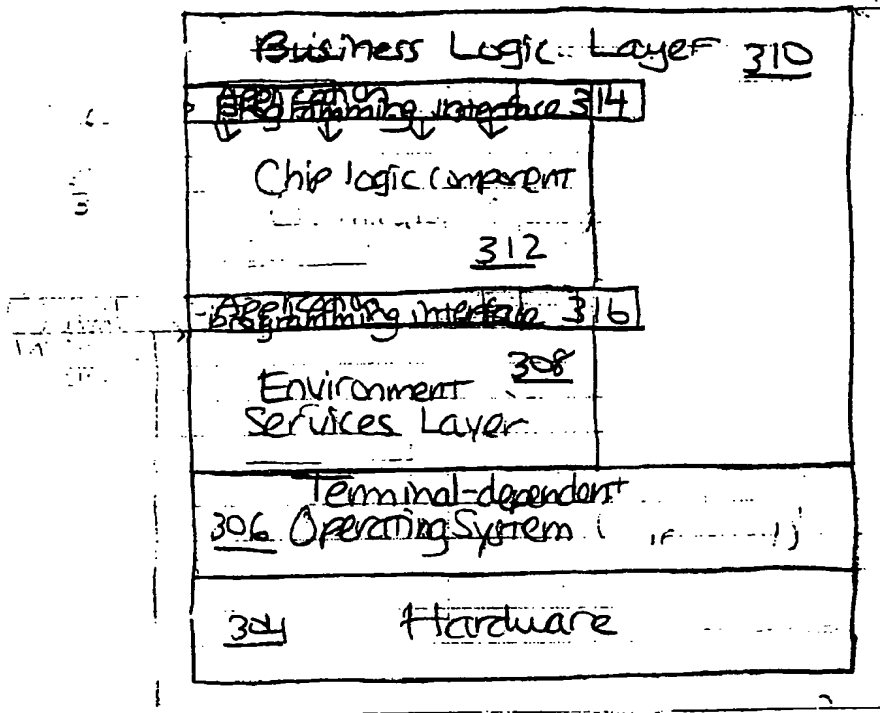 Business Logic Layer 310
Application
programming interface 314
Chip logic component
312
Application
programming interface 316
308
Environment
Services Layer
Terminal-dependent
306 Operating System
304 Hardware